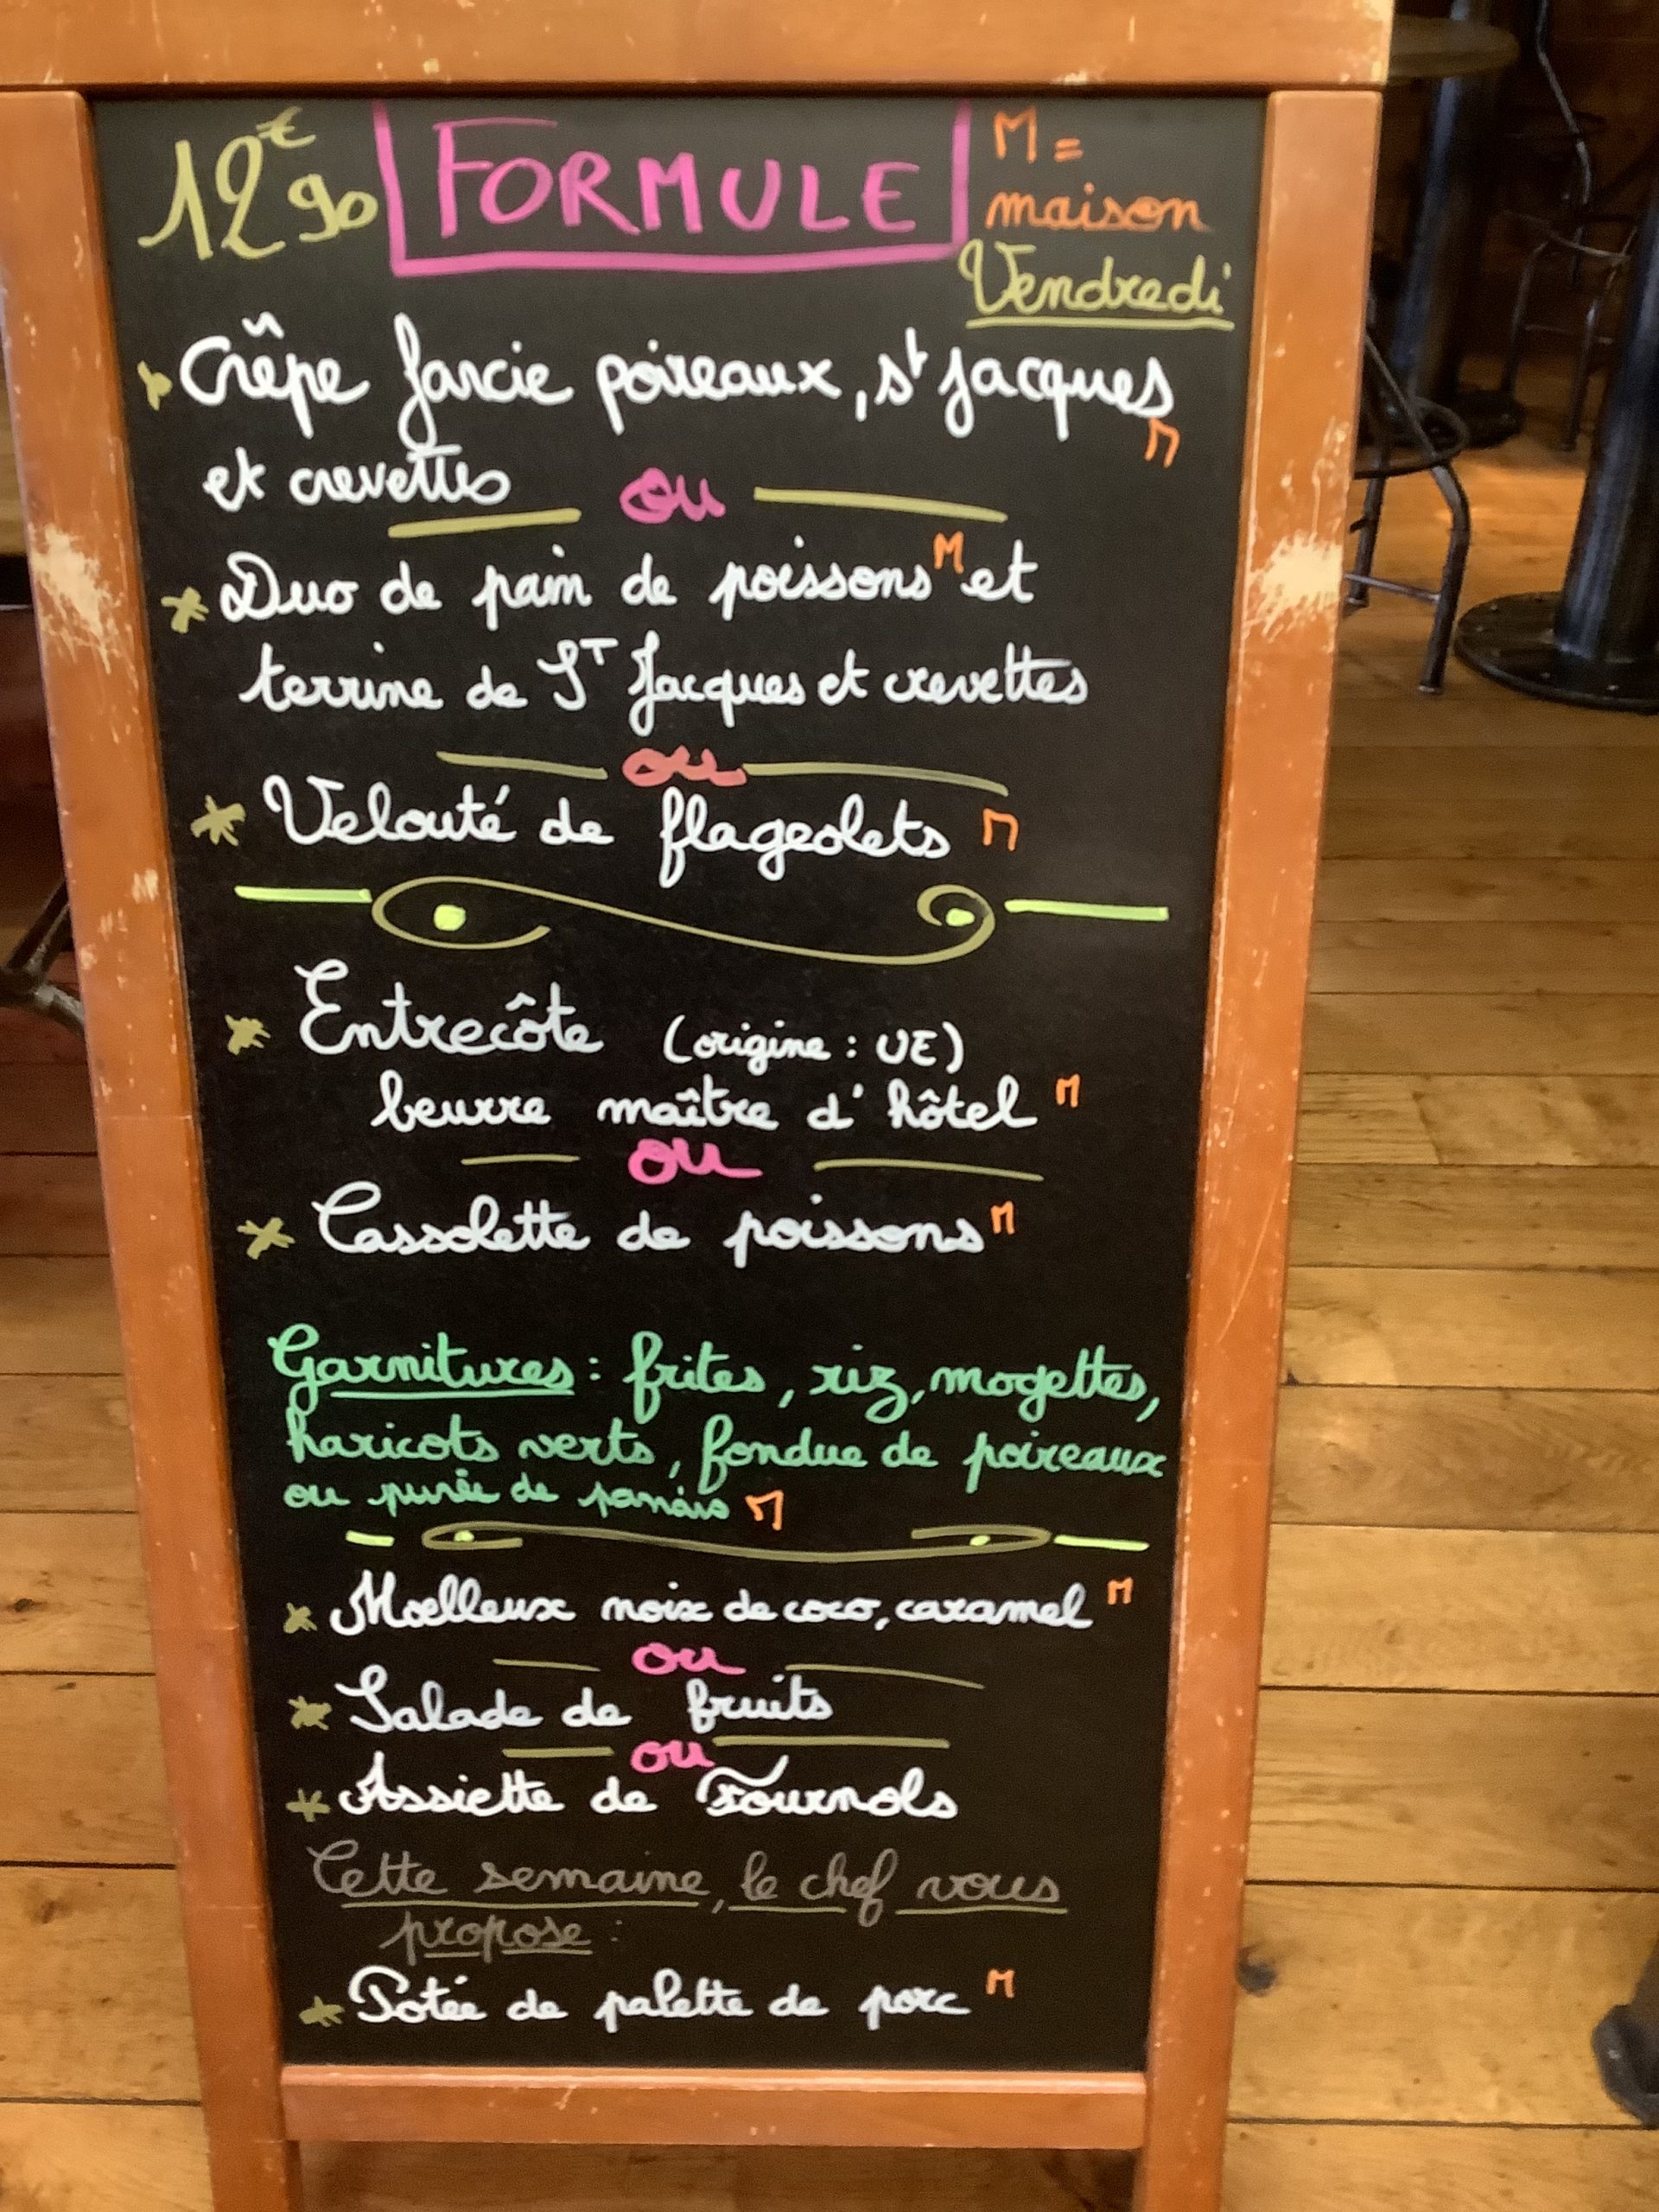 12€90 FORMULE M =
maison
Vendredi
Crêpe farcie poireaux, St Jacques
M
et crevettes
ou
Duo de pain de poissons M et
terrine de ST Jacques et crevettes
ou
Velouté de flageolets M
Entrecôte (origine : UE)
beurre maître d'hôtel M
ou
Cassolette de poissons M
Garnitures : frites, riz, mogettes,
haricots verts, fondue de poireaux
ou purée de panais M
Moelleux noix de coco, caramel M
ou
Salade de fruits
ou
Assiette de Fournols
Cette semaine, le chef vous
propose :
Potée de palette de porc M